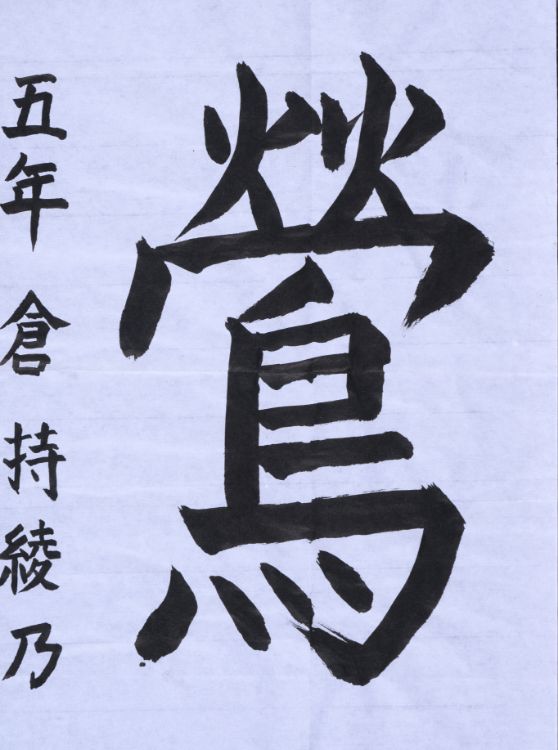 鶯
五年 倉持綾乃